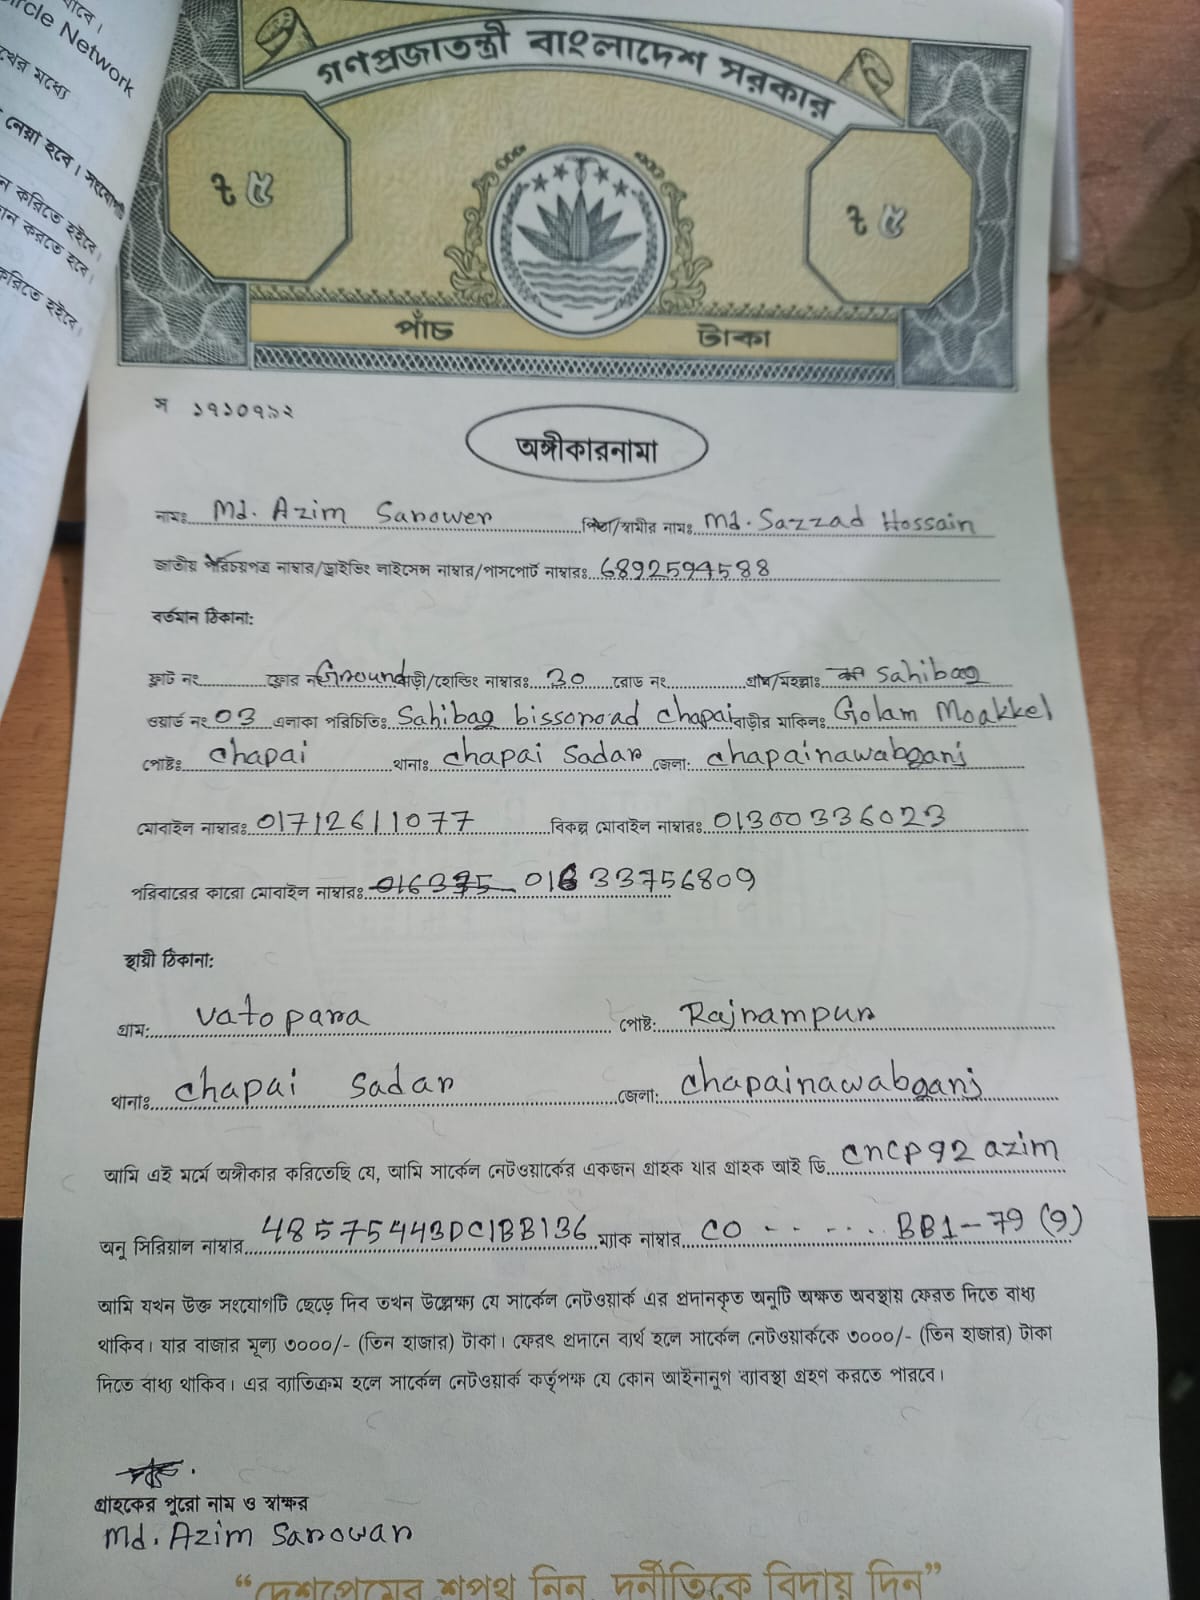 যাবে।
ircle Network
খের মধ্যে
নেয়া হবে। সংযোগটি
ন করিতে হইবে।
ান করতে হবে।
করিতে হইবে।
গণপ্রজাতন্ত্রী বাংলাদেশ সরকার
৳ ৫
৳ ৫
পাঁচ টাকা
স ১৭১০৭৯২
অঙ্গীকারনামা
নামঃ Md. Azim Sarower পিতা/স্বামীর নামঃ Md. Sazzad Hossain
জাতীয় পরিচয়পত্র নাম্বার/ড্রাইভিং লাইসেন্স নাম্বার/পাসপোর্ট নাম্বারঃ 6892594588
বর্তমান ঠিকানা:
ফ্লাট নং ফ্লোর নং Ground বাড়ী/হোল্ডিং নাম্বারঃ 30 রোড নং গ্রাম/মহল্লাঃ Sahibag
ওয়ার্ড নং 03 এলাকা পরিচিতিঃ Sahibag bissoroad chapai বাড়ীর মালিকঃ Golam Moakkel
পোষ্টঃ chapai থানাঃ chapai Sadar জেলা: chapainawabganj
মোবাইল নাম্বারঃ 01712611077 বিকল্প মোবাইল নাম্বারঃ 01300336023
পরিবারের কারো মোবাইল নাম্বারঃ 01633756809
স্থায়ী ঠিকানা:
গ্রাম: vatopara পোষ্ট: Rajrampur
থানাঃ chapai sadar জেলা: chapainawabganj
আমি এই মর্মে অঙ্গীকার করিতেছি যে, আমি সার্কেল নেটওয়ার্কের একজন গ্রাহক যার গ্রাহক আই ডি cncp92azim
অনু সিরিয়াল নাম্বার 48575443DC1BB136 ম্যাক নাম্বার CO - - - - - BB1-79 (9)
আমি যখন উক্ত সংযোগটি ছেড়ে দিব তখন উল্লেক্ষ্য যে সার্কেল নেটওয়ার্ক এর প্রদানকৃত অনুটি অক্ষত অবস্থায় ফেরত দিতে বাধ্য
থাকিব। যার বাজার মূল্য ৩০০০/- (তিন হাজার) টাকা। ফেরৎ প্রদানে ব্যর্থ হলে সার্কেল নেটওয়ার্ককে ৩০০০/- (তিন হাজার) টাকা
দিতে বাধ্য থাকিব। এর ব্যাতিক্রম হলে সার্কেল নেটওয়ার্ক কর্তৃপক্ষ যে কোন আইনানুগ ব্যাবস্থা গ্রহণ করতে পারবে।
গ্রাহকের পুরো নাম ও স্বাক্ষর
Md. Azim Sarowar
“দেশপ্রেমের শপথ নিন, দুর্নীতিকে বিদায় দিন”